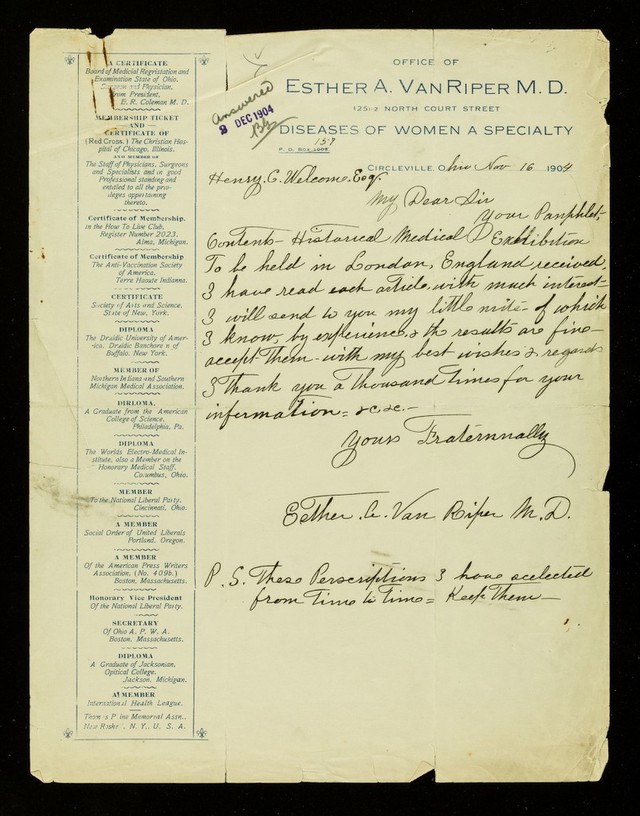 A CERTIFICATE
Board of Medical Regristation and
Examination State of Ohio.
Surgeon and Physician.
From President,
E. R. Coleman M. D.
MEMBERSHIP TICKET
—AND—
CERTIFICATE OF
(Red Cross.) The Christian Hos-
pital of Chicago, Illinois.
AND MEMBER OF
The Staff of Physicians, Surgeons
and Specialists and in good
Professional standing and
entitled to all the priv-
ileges appertaining
thereto.
Certificate of Membership.
in the How To Live Club,
Register Number 2023.
Alma, Michigan.
Certificate of Membership
The Anti-Vaccination Society
of America.
Terre Haoute Indianna.
CERTIFICATE
Society of Arts and Science,
State of New, York.
DIPLOMA
The Druidic University of Amer-
ica. Draidic Banchorn of
Buffalo, New York.
MEMBER OF
Northern Indiana and Southern
Michigan Medical Association.
DIPLOMA.
A Graduate from the American
College of Science.
Philadelphia, Pa.
DIPLOMA
The Worlds Electro-Medical In-
stitute, also a Member on the
Honorary Medical Staff.
Columbus, Ohio.
MEMBER
To the National Liberal Party.
Cincinnati, Ohio.
A MEMBER
Social Order of United Liberals
Portland, Oregon.
A MEMBER
Of the American Press Writers
Association, (No. 409b.)
Boston, Massachusetts.
Honorary Vice President
Of the National Liberal Party.
SECRETARY
Of Ohio A. P. W. A.
Boston, Massachusetts.
DIPLOMA
A Graduate of Jacksonian,
Optical College,
Jackson, Michigan.
A MEMBER
International Health League.
Thomas Paine Memorial Assn.,
N.Y., U. S. A.
OFFICE OF
ESTHER A. VAN RIPER M. D.
125 1-2 NORTH COURT STREET
DISEASES OF WOMEN A SPECIALTY
157
P. O. BOX
Answered
9 DEC 1904
CIRCLEVILLE Ohio Nov 16 1904
Henry C. Welcome. Esqr.
My Dear Sir
Your Pamphlet,
Contents Historical Medical Exhibition
To be held in London, England received,
I have read each article with much interest-
I will send to you my little mite- of which
I know, by experience, & the results are fine-
accept them- with my best wishes & regards
I thank you a thousand times for your
information = &c, &c. -
Yours Fraternnally
Esther. A. Van Riper M. D.
P. S. These Perscriptions I have sellected
from Time to Time = Keep Them —